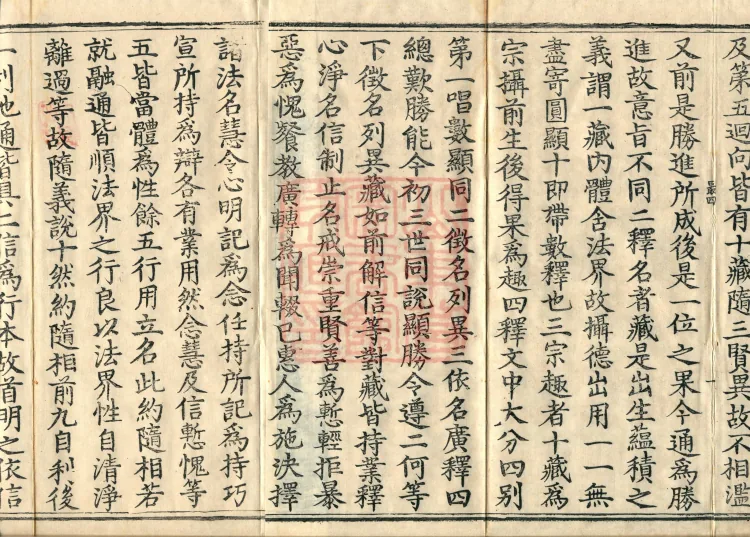 及第五迴向皆有十藏隨三賢異故不相濫
又前是勝進所成後是一位之果今通為勝
進故意旨不同二釋名者藏是出生蘊積之
義謂一藏內體含法界故攝德出用一一無
盡寄圓顯十即帶數釋也三宗趣者十藏為
宗攝前生後得果為趣四釋文中大分四别
第一唱數顯同二徵名列異三依名廣釋四
總歎勝能今初三世同說顯勝令遵二何等
下徵名列異藏如前解信等對藏皆持業釋
心淨名信制止名戒崇重賢善為慙輕拒暴
惡為愧飡教廣轉為聞輟已惠人為施決擇
諸法名慧令心明記為念任持所記為持巧
宣所持為辯各有業用然念慧及信慙愧等
五皆當體為性餘五行用立名此約隨相若
就融通皆順法界之行良以法界性自清淨
離過等故隨義說十然約隨相前九自利後
一利他通皆具二信為行本故首明之依信